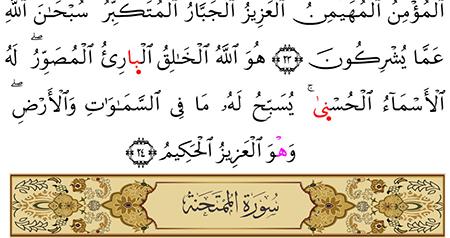 ٱلْمُؤْمِنُ ٱلْمُهَيْمِنُ ٱلْعَزِيزُ ٱلْجَبَّارُ ٱلْمُتَكَبِّرُ سُبْحَـٰنَ ٱللَّهِ
عَمَّا يُشْرِكُونَ ﴿٢٣﴾ هُوَ ٱللَّهُ ٱلْخَـٰلِقُ ٱلْبَارِئُ ٱلْمُصَوِّرُ ۖ لَهُ
ٱلْأَسْمَآءُ ٱلْحُسْنَىٰ ۚ يُسَبِّحُ لَهُۥ مَا فِى ٱلسَّمَـٰوَٰتِ وَٱلْأَرْضِ ۖ
وَهْوَ ٱلْعَزِيزُ ٱلْحَكِيمُ ﴿٢٤﴾
سُورَةُ المُمْتَحِنَةِ